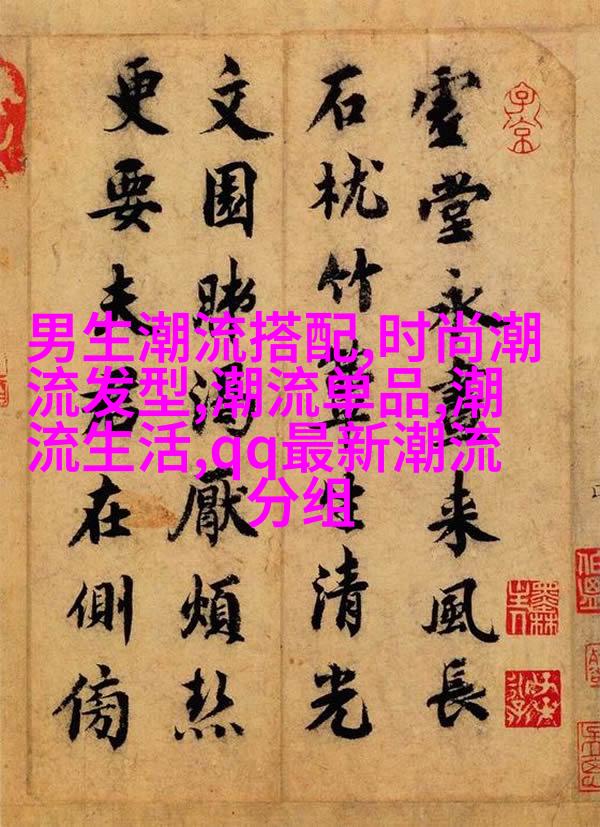 男生潮流搭配,时尚潮
流发型,潮流单品,潮
流生活,qq最新潮流
分组
堂永晝來風長
石枕竹簟生清光
文園渴厭煩熱
更要夫君在側傍